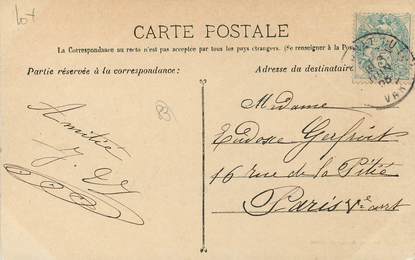 lot
CARTE POSTALE
La Correspondance au recto n'est pas acceptée par tous les pays étrangers. (Se renseigner à la Poste
Partie réservée à la correspondance:
Adresse du destinataire
83
Amitié
Madame
Eudoxe
16 rue de la Pitié
Paris Ve arrt
VAR